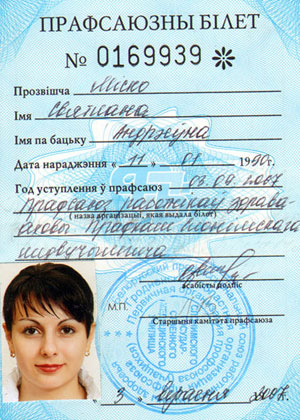 ПРАФСАЮЗНЫ БІЛЕТ
№ 0169939 ✻
Прозвішча Міско
Імя Святлана
Імя па бацьку Андрэеўна
Дата нараджэння « 11 » 01 1990 г.
Год уступлення ў прафсаюз 03.09.2007
Прафсаюз работнікаў здрава-
( назва арганізацыі, якая выдала білет )
аховы Прафкам
медвучылішча
асабісты подпіс
М.П.
Старшыня камітэта прафсаюза
„ 3 " верасня 2007 г.